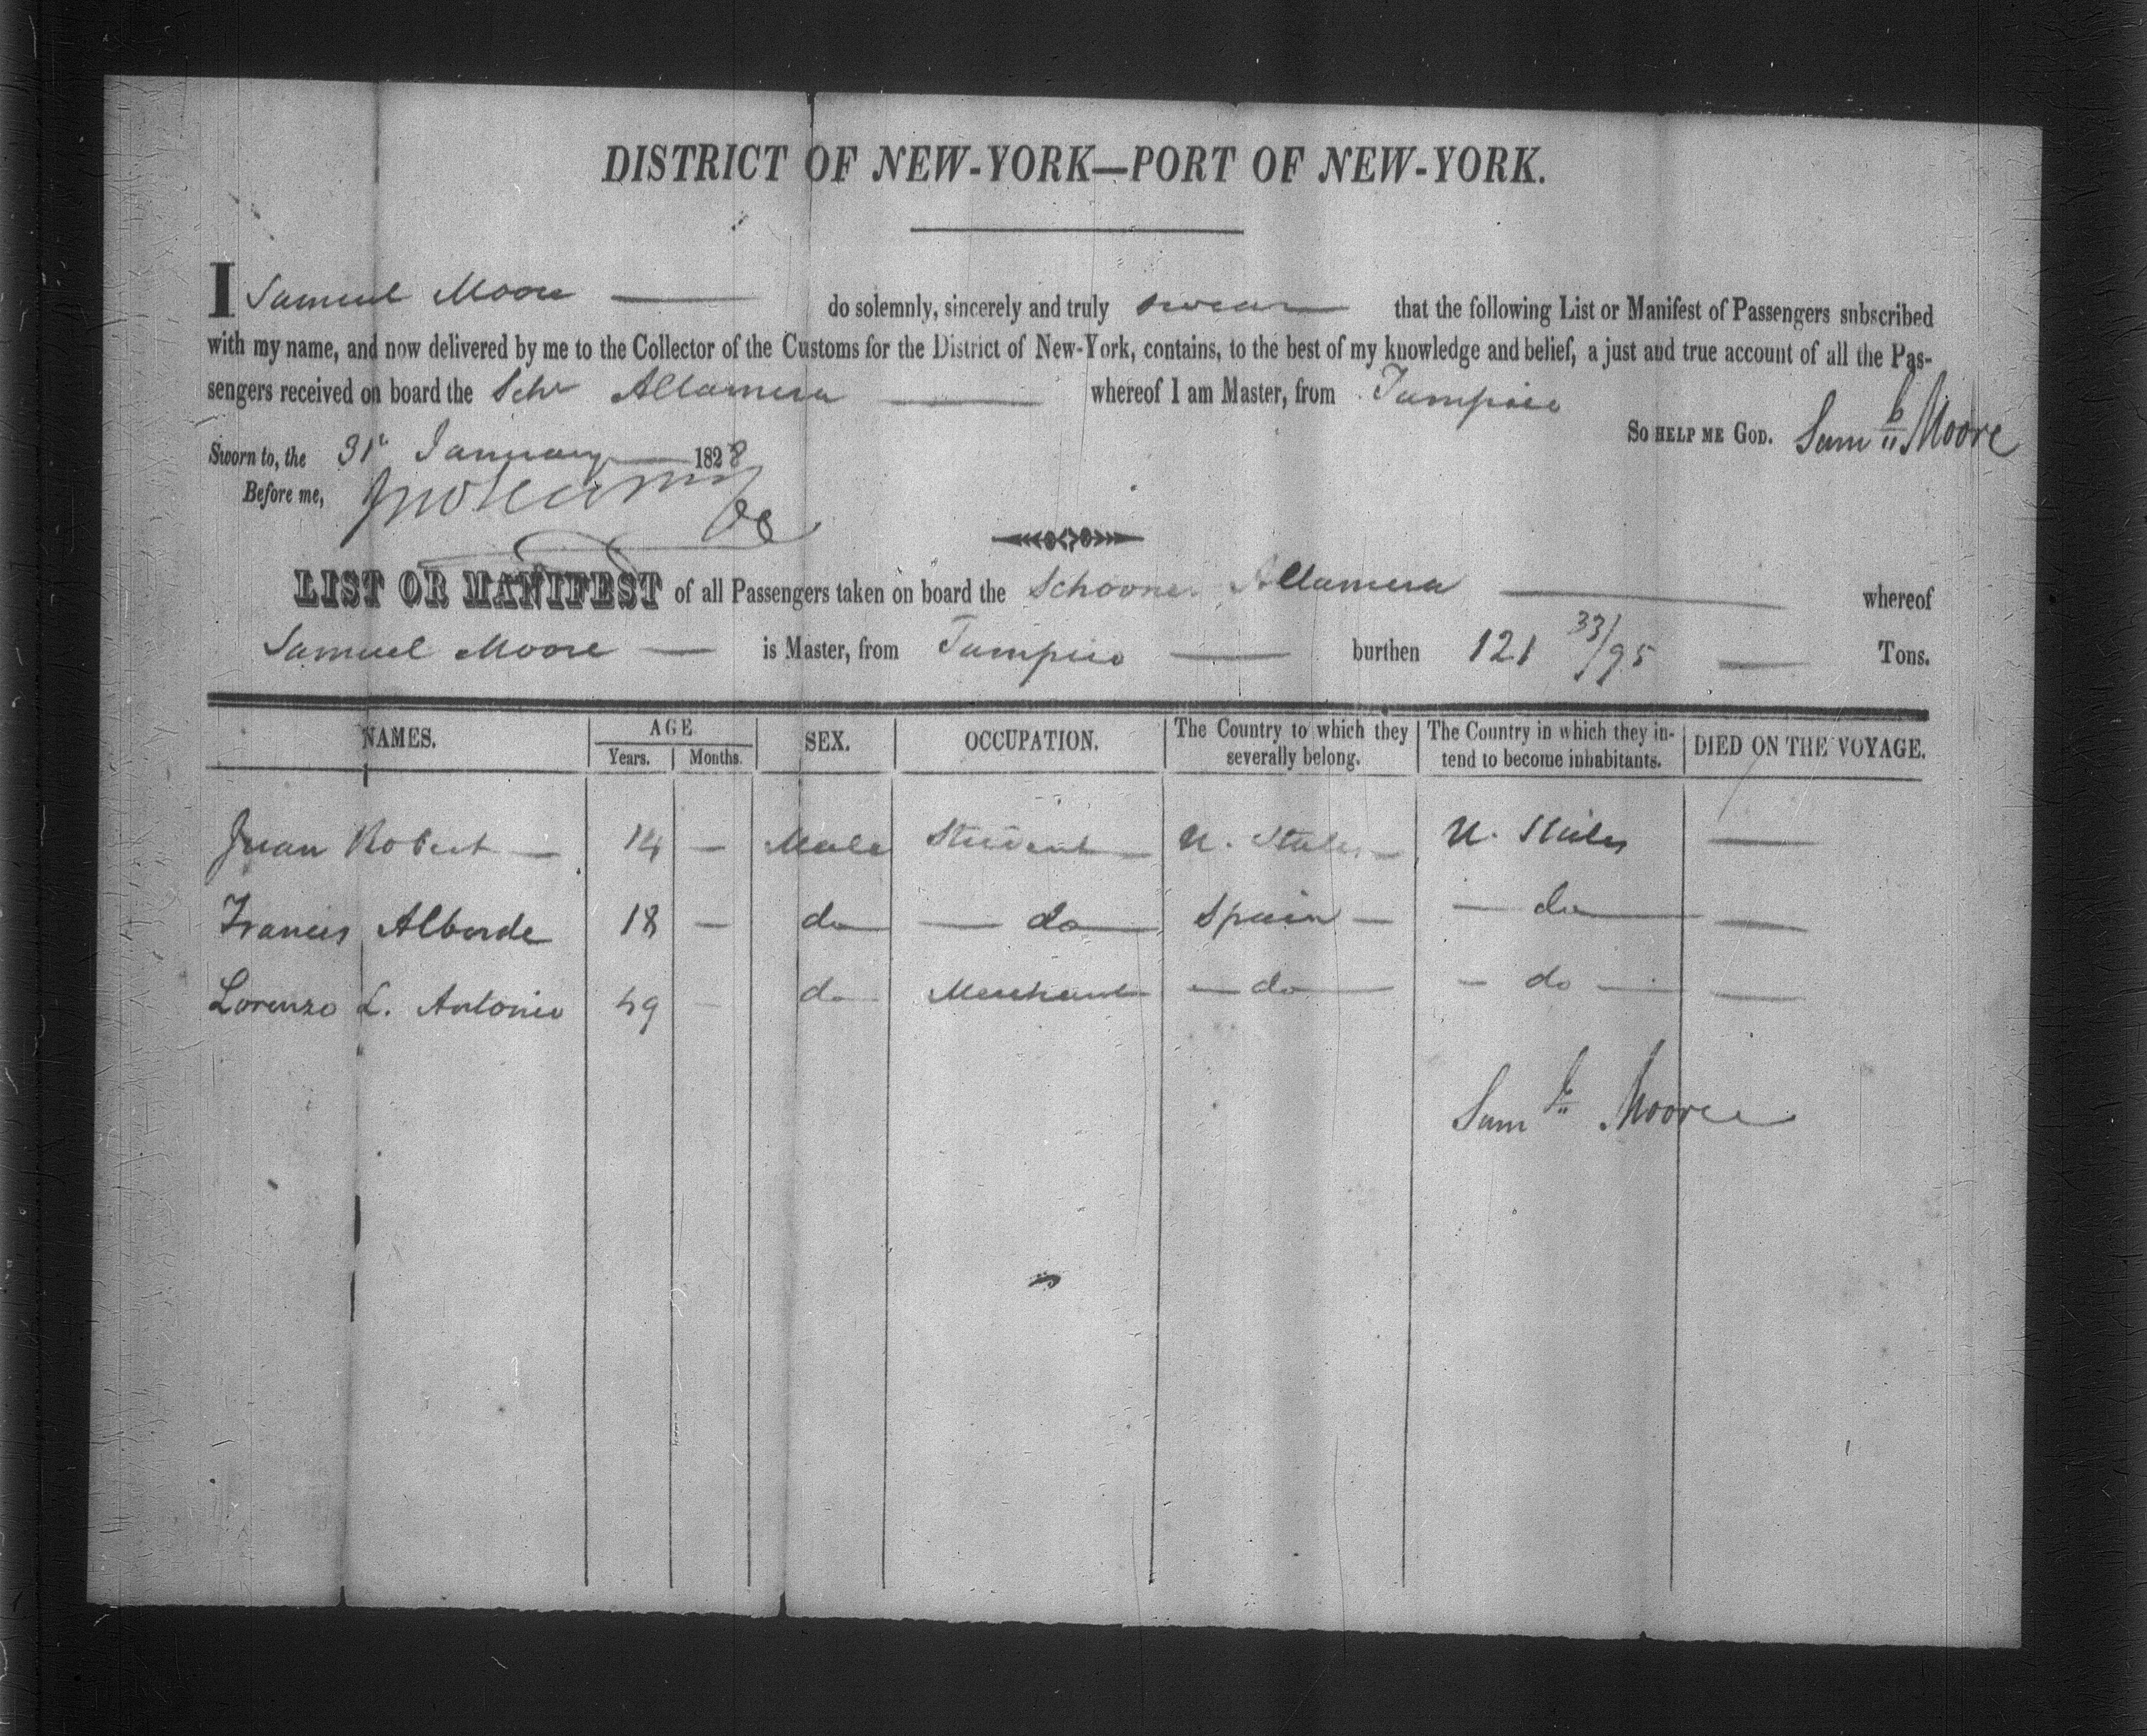 DISTRICT OF NEW-YORK—PORT OF NEW-YORK.
I Samuel Moore — do solemnly, sincerely and truly swear that the following List or Manifest of Passengers subscribed
with my name, and now delivered by me to the Collector of the Customs for the District of New-York, contains, to the best of my knowledge and belief, a just and true account of all the Pas-
sengers received on board the Schr Altamera — whereof I am Master, from Tampico
So help me God. Saml Moore
Sworn to, the 31t January 1828
Before me,
LIST OR MANIFEST of all Passengers taken on board the Schooner Altamera — whereof
Samuel Moore — is Master, from Tampico — burthen 121 33/95 — Tons.
NAMES. AGE Years. Months. SEX. OCCUPATION. The Country to which they severally belong. The Country in which they intend to become inhabitants. DIED ON THE VOYAGE.
Juan Robert — 14 — Male Student — U. States — U. States —
Francis Alborde 18 — do — do — Spain — — do — —
Lorenzo L. Antonio 49 — do Merchant — do — - do — —
Saml Moore